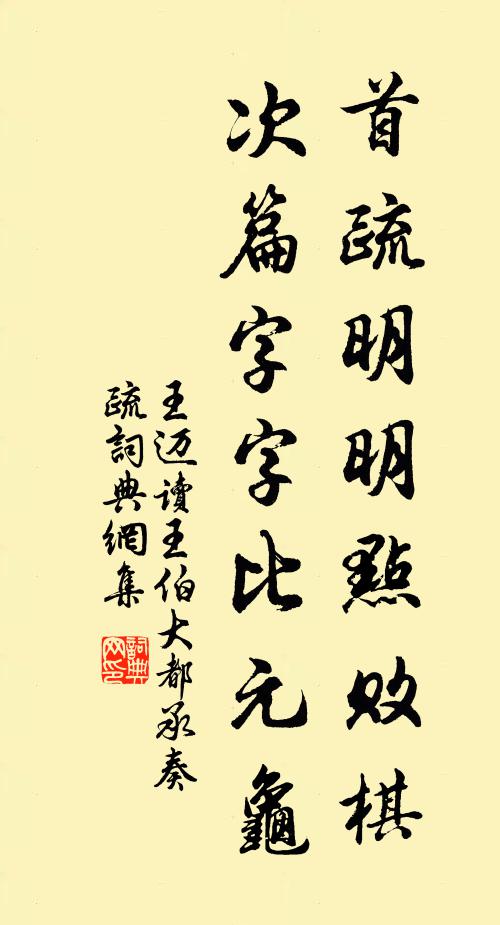 首疏明明點败棋
次篇字字比元龜
王迈讀王伯大都承奏
疏詞典網集
詞典網印